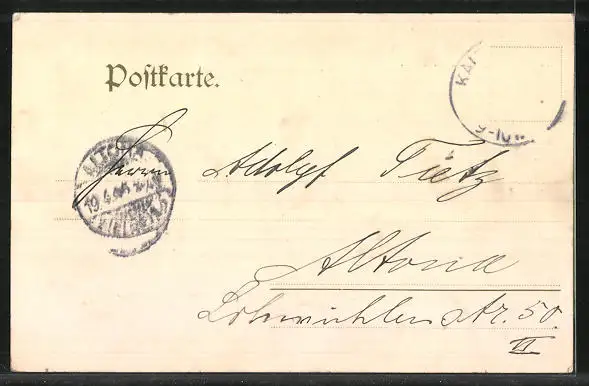 Postkarte.
KAI
9-10
ALTONA
19.4.05
Herrn Adolpf Tietz
Altona
Lohmühlenstr. 50.
VI